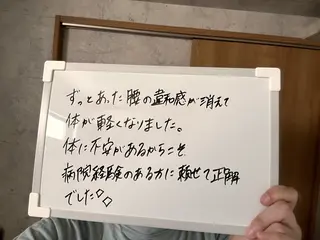 ずっとあった腰の違和感が消えて
体が軽くなりました。
体に不安があるからこそ
病院経験のある方に頼せて正解
でした